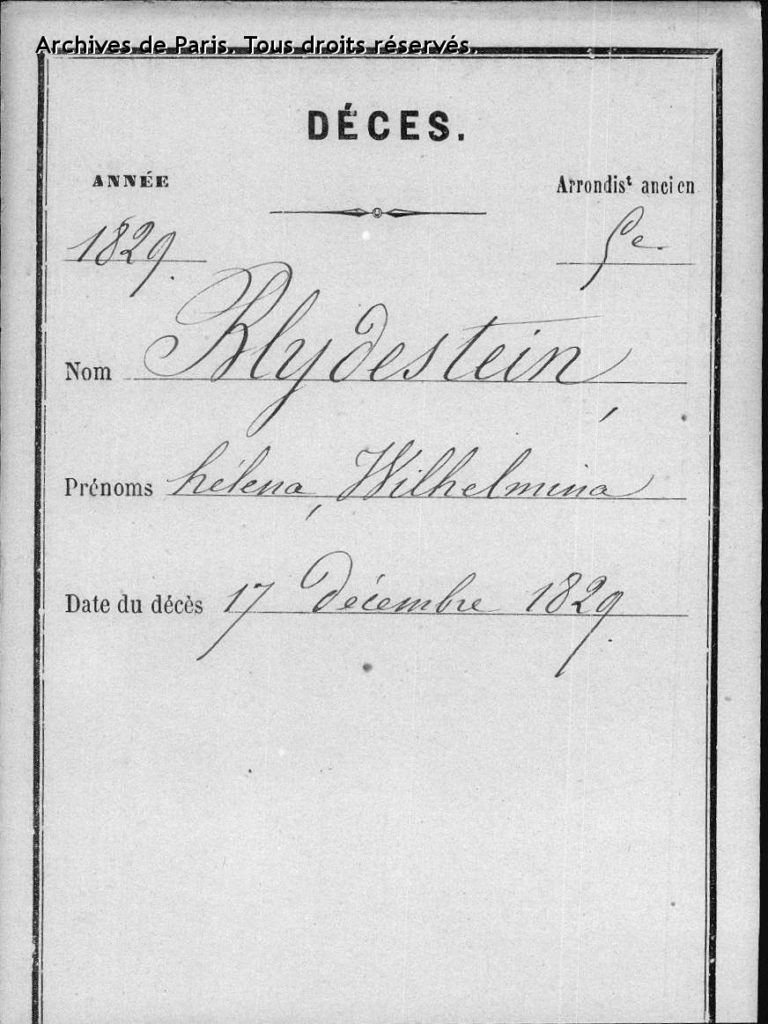 Archives de Paris. Tous droits réservés.
DÉCES.
ANNÉE
Arrondist ancien
1829.
5e
Nom Blydestein,
Prénoms héléna, Wilhelmina
Date du décès 17 Décembre 1829.